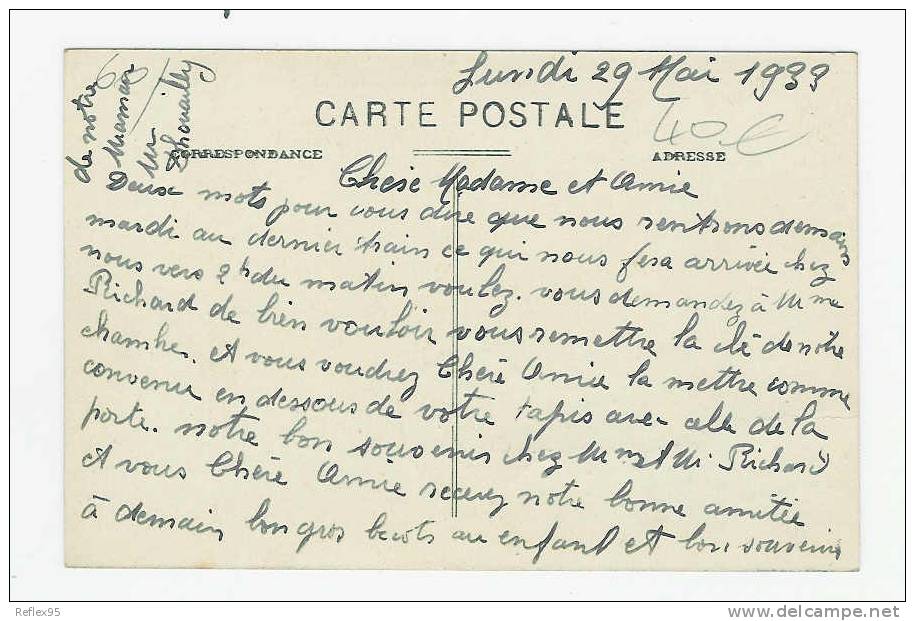 Lundi 29 Mai 1933
CARTE POSTALE
40€
CORRESPONDANCE
ADRESSE
Chere Madame et Amie
Deux mots pour vous dire que nous rentrons demain
mardi au dernier train ce qui nous fera arrivée chez
nous vers 2h du matin voulez. vous demandez à Mme
Richard de bien vouloir vous remettre la clé de notre
chambre. et vous voudrez Chère Amie la mettre comme
convenu en dessous de votre tapis avec celle de la
porte. notre bon souvenir chez Mme et Mr Richard
et vous Chère Amie recevez notre bonne amitiée
à demain bon gros becots au enfant et bon souvenir
de notre
Maman
Reflex95
www.delcampe.net